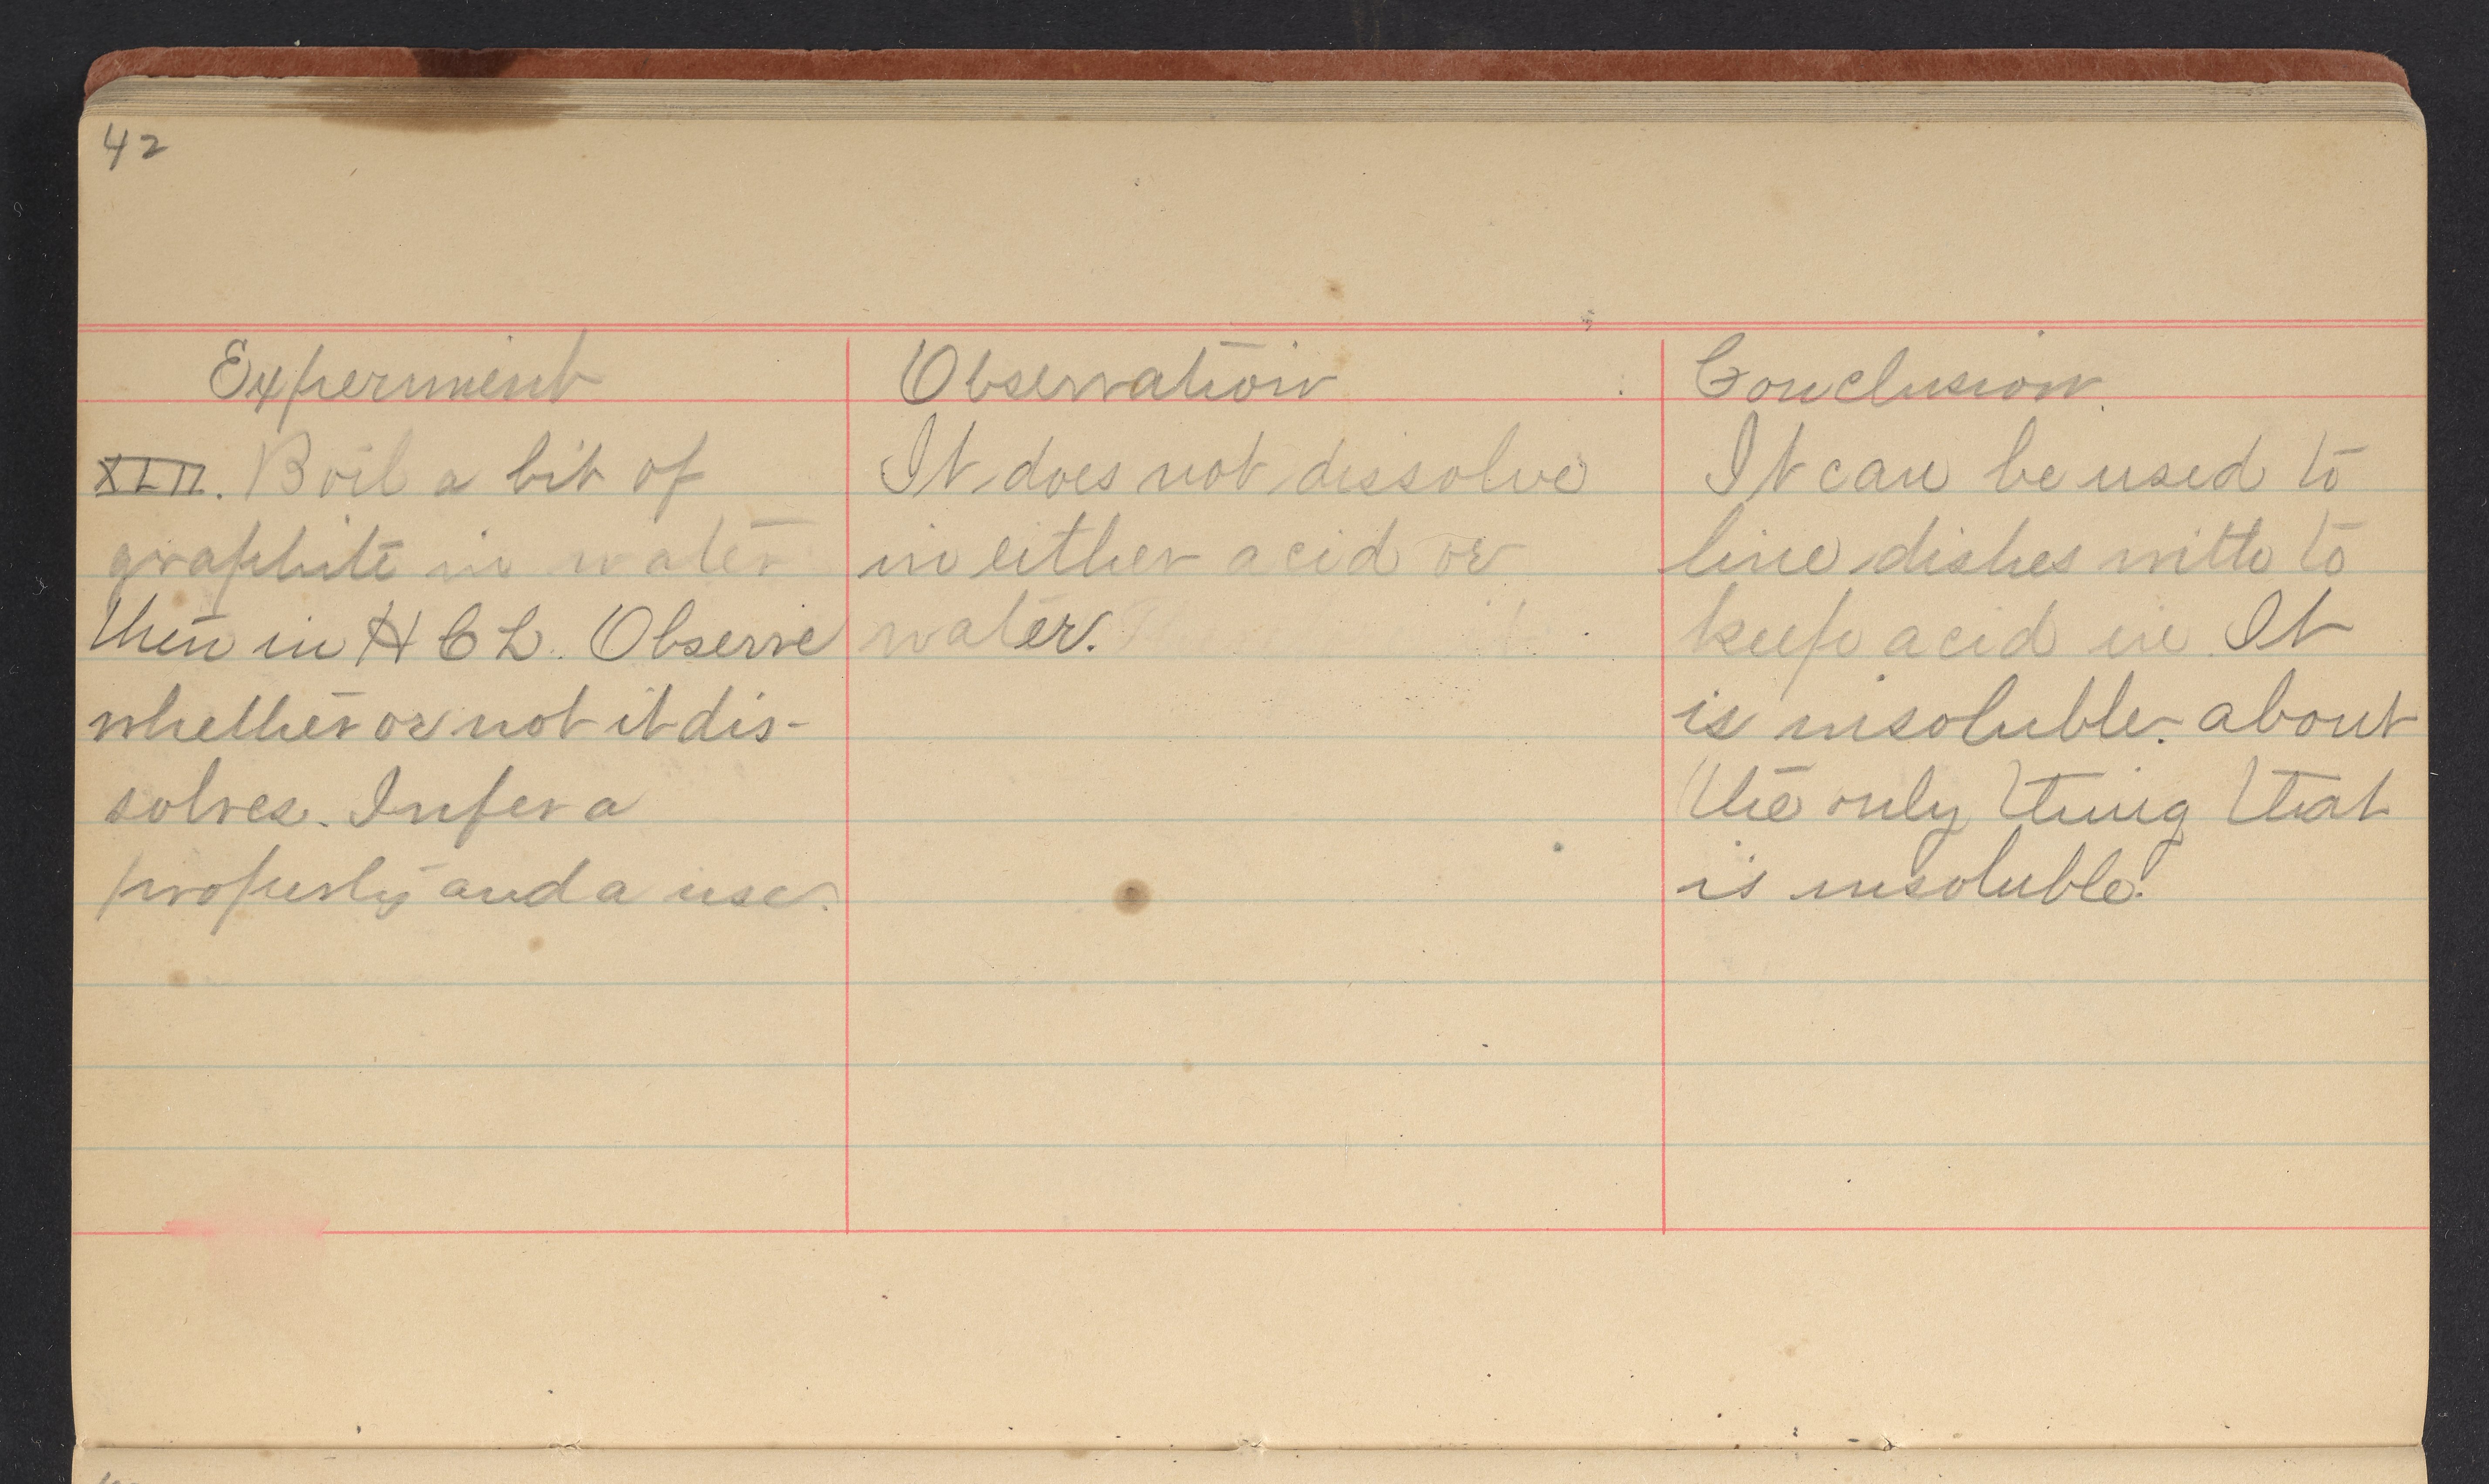 42
Experiment
XLII. Boil a bit of
graphite in water
then in HCL. Observe
whether or not it dis-
solves. Infer a
property and a use.
Observation
It does not dissolve
in either acid or
water.
Conclusion.
It can be used to
line dishes with to
keep acid in. It
is insoluble. about
the only thing that
is insoluble.